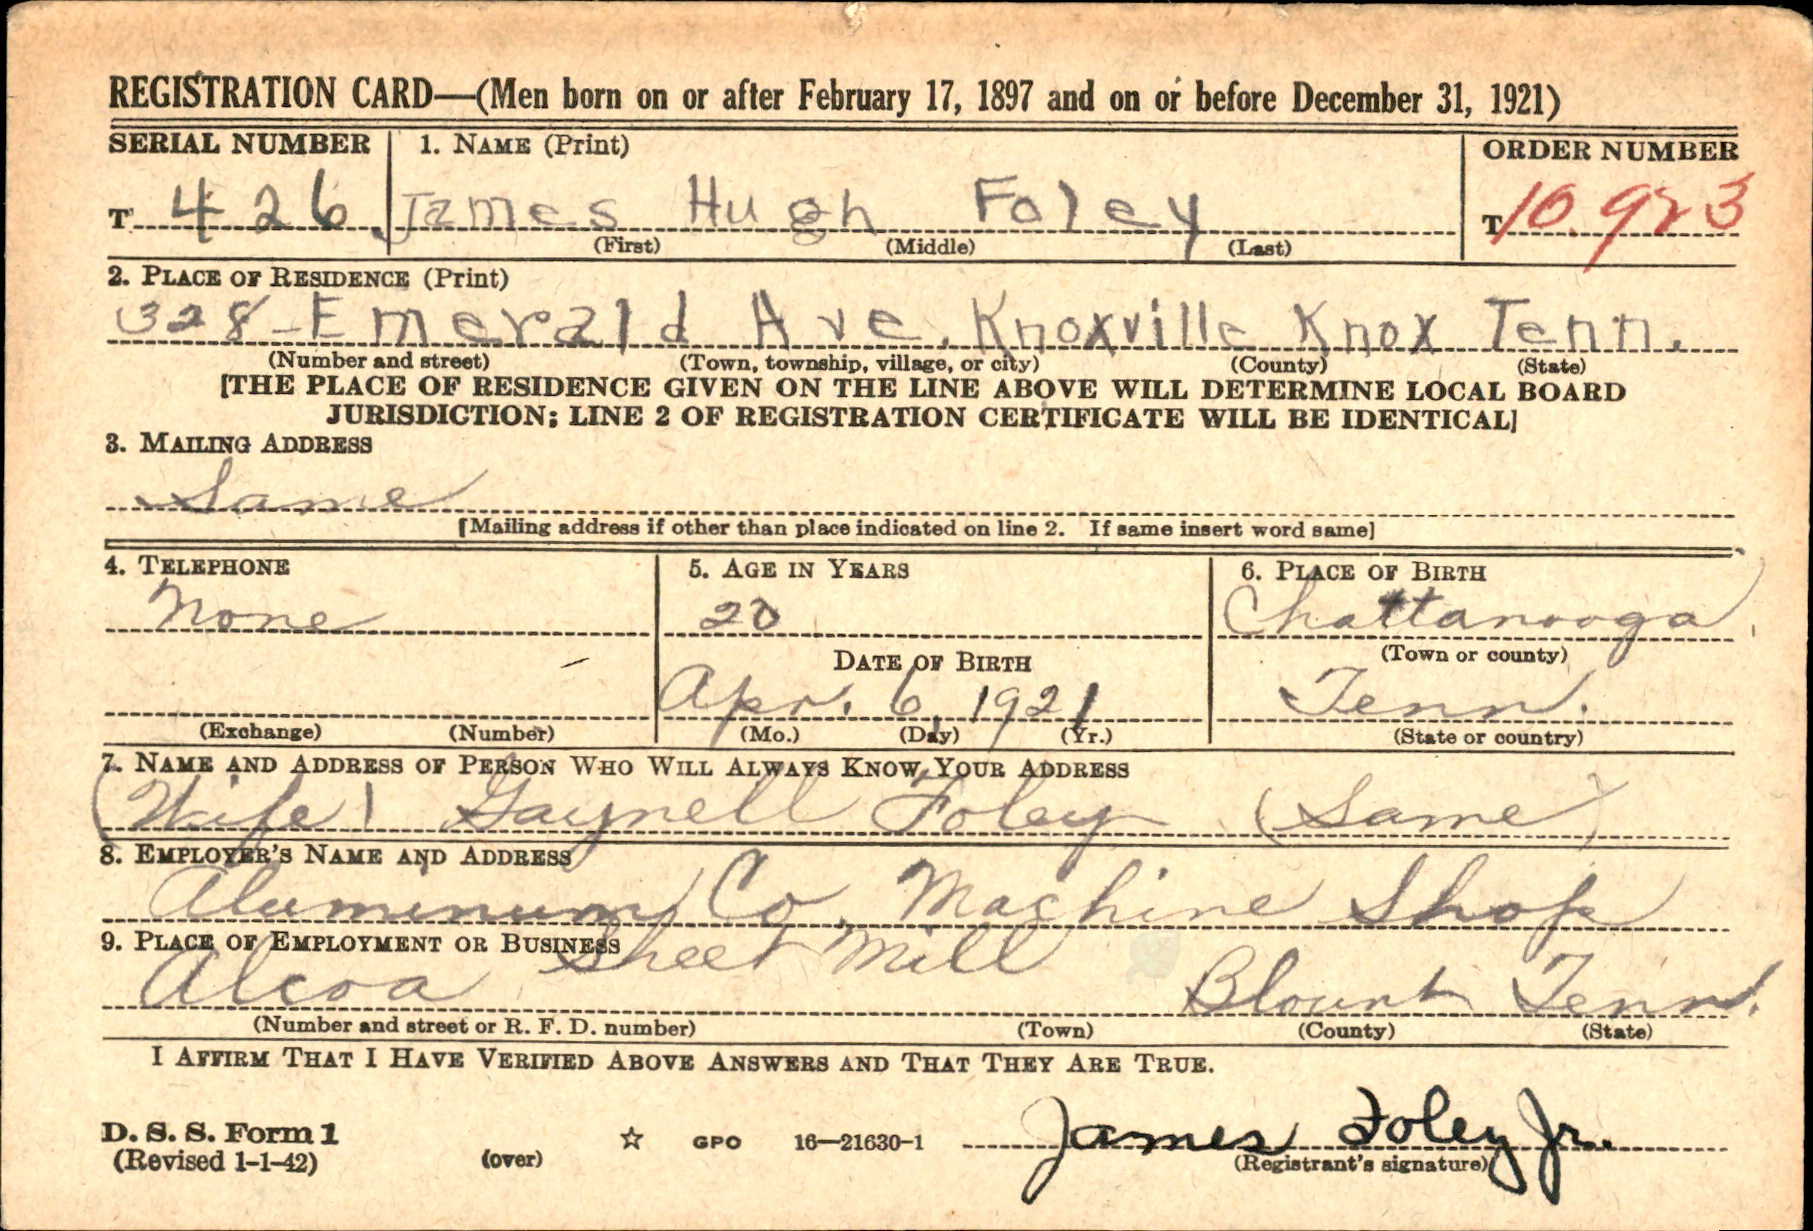 REGISTRATION CARD—(Men born on or after February 17, 1897 and on or before December 31, 1921)
SERIAL NUMBER 1. NAME (Print) ORDER NUMBER
T 426 James Hugh Foley T 10,923
(First) (Middle) (Last)
2. PLACE OF RESIDENCE (Print)
328 - Emerald Ave. Knoxville Knox Tenn.
(Number and street) (Town, township, village, or city) (County) (State)
[THE PLACE OF RESIDENCE GIVEN ON THE LINE ABOVE WILL DETERMINE LOCAL BOARD
JURISDICTION; LINE 2 OF REGISTRATION CERTIFICATE WILL BE IDENTICAL]
3. MAILING ADDRESS
Same
[Mailing address if other than place indicated on line 2. If same insert word same]
4. TELEPHONE 5. AGE IN YEARS 6. PLACE OF BIRTH
None 20 Chattanooga
DATE OF BIRTH (Town or county)
Apr. 6, 1921 Tenn.
(Exchange) (Number) (Mo.) (Day) (Yr.) (State or country)
7. NAME AND ADDRESS OF PERSON WHO WILL ALWAYS KNOW YOUR ADDRESS
(Wife) Gaynell Foley (Same)
8. EMPLOYER'S NAME AND ADDRESS
Aluminum Co. Machine Shop
9. PLACE OF EMPLOYMENT OR BUSINESS
Sheet Mill
Alcoa Blount Tenn.
(Number and street or R. F. D. number) (Town) (County) (State)
I AFFIRM THAT I HAVE VERIFIED ABOVE ANSWERS AND THAT THEY ARE TRUE.
D. S. S. Form 1
(Revised 1-1-42) (over) ☆ GPO 16—21630-1 James Foley Jr.
(Registrant's signature)